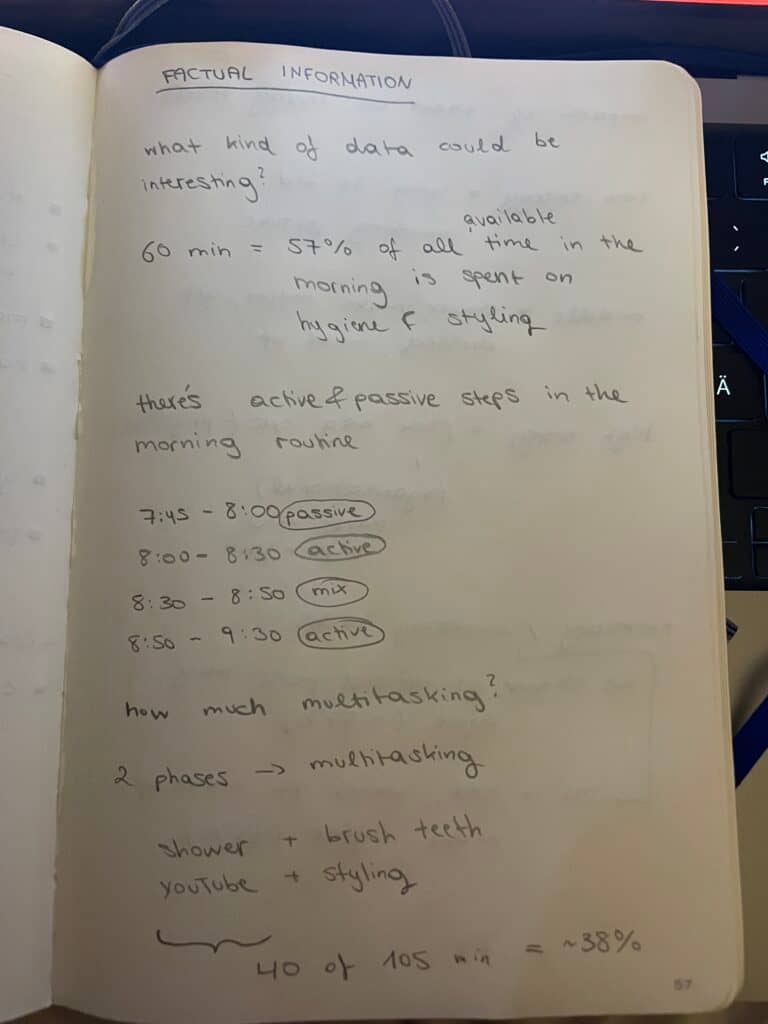 FACTUAL INFORMATION
what kind of data could be
interesting?
available
60 min = 57% of all time in the
morning is spent on
hygiene & styling
there's active & passive steps in the
morning routine
7:45 - 8:00 passive
8:00 - 8:30 active
8:30 - 8:50 mix
8:50 - 9:30 active
how much multitasking?
2 phases -> multitasking
shower + brush teeth
YouTube + styling
40 of 105 min = ~38%
57
Ä